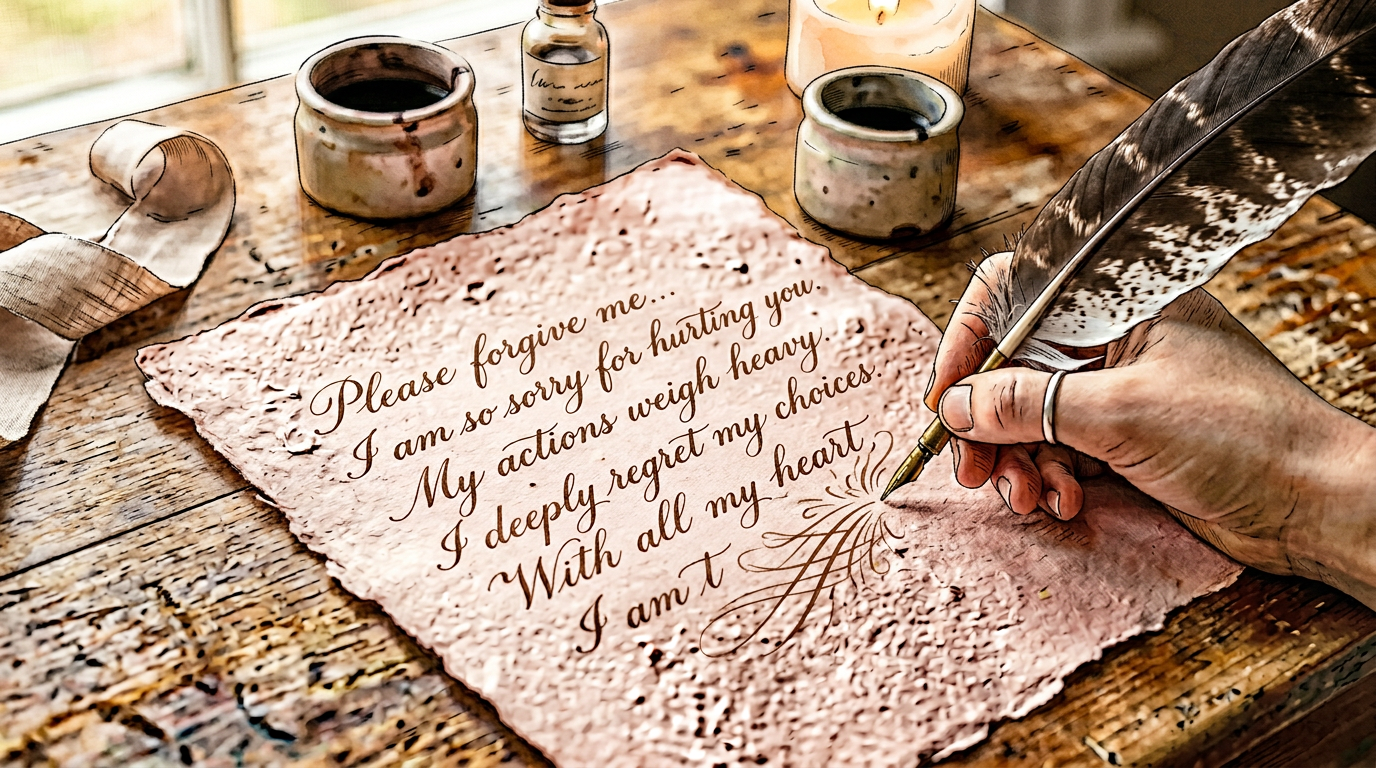 Please forgive me...
I am so sorry for hurting you.
My actions weigh heavy.
I deeply regret my choices.
With all my heart
I am T